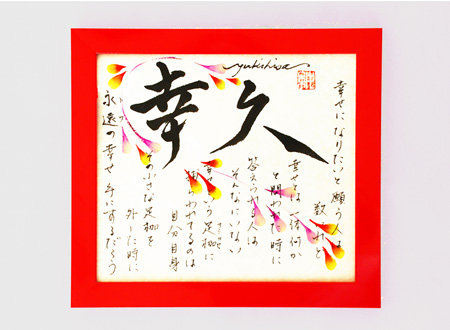 yukihisa
幸久
幸せになりたいと願う人は
数あれど
幸せとは一体何か
と問われた時に
答えられる人は
そんなにいない
幸せという足枷に
捕らわれてるのは
自分自身
その小さな足枷を
外した時に
永遠の幸せ手にするだろう